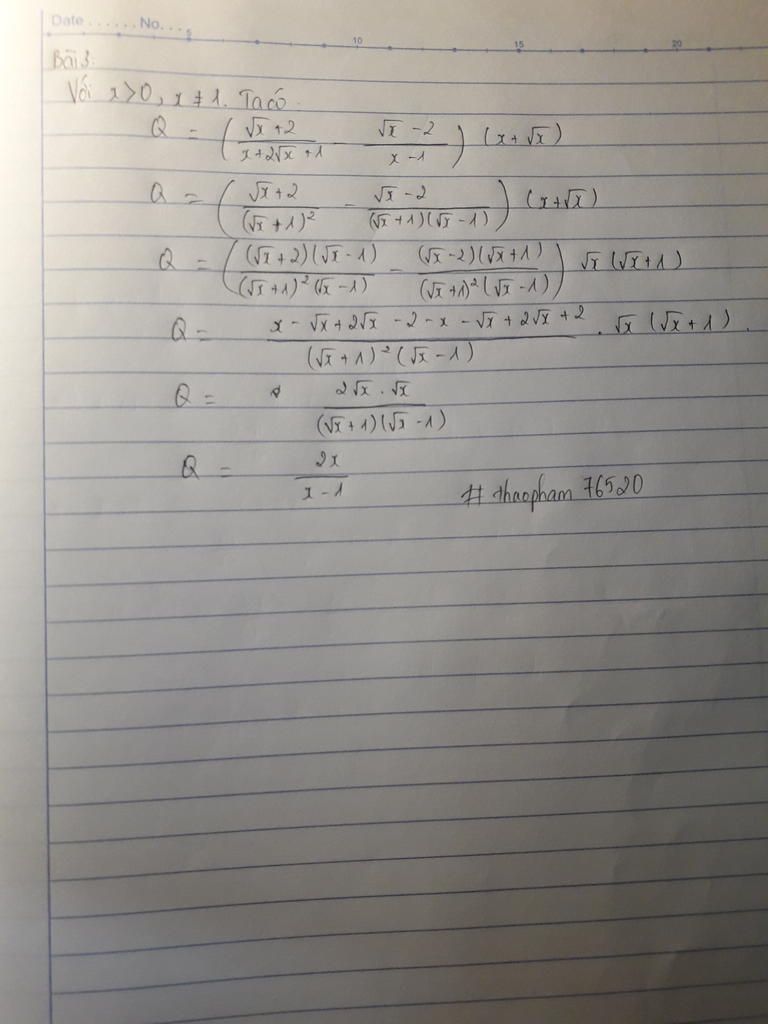 Date ...... No. ...
5 10 15 20
Bài 3:
Với x > 0, x ≠ 1. Ta có
Q = ( (√x + 2)/(x + 2√x + 1) − (√x − 2)/(x − 1) ) (x + √x)
Q = ( (√x + 2)/((√x + 1)²) − (√x − 2)/((√x + 1)(√x − 1)) ) (x + √x)
Q = ( ((√x + 2)(√x − 1))/((√x + 1)²(√x − 1)) − ((√x − 2)(√x + 1))/((√x + 1)²(√x − 1)) ) √x (√x + 1)
Q = (x − √x + 2√x − 2 − x − √x + 2√x + 2)/((√x + 1)²(√x − 1)) . √x (√x + 1).
Q = (2√x . √x)/((√x + 1)(√x − 1))
Q = 2x/(x − 1)
# thaopham 76520